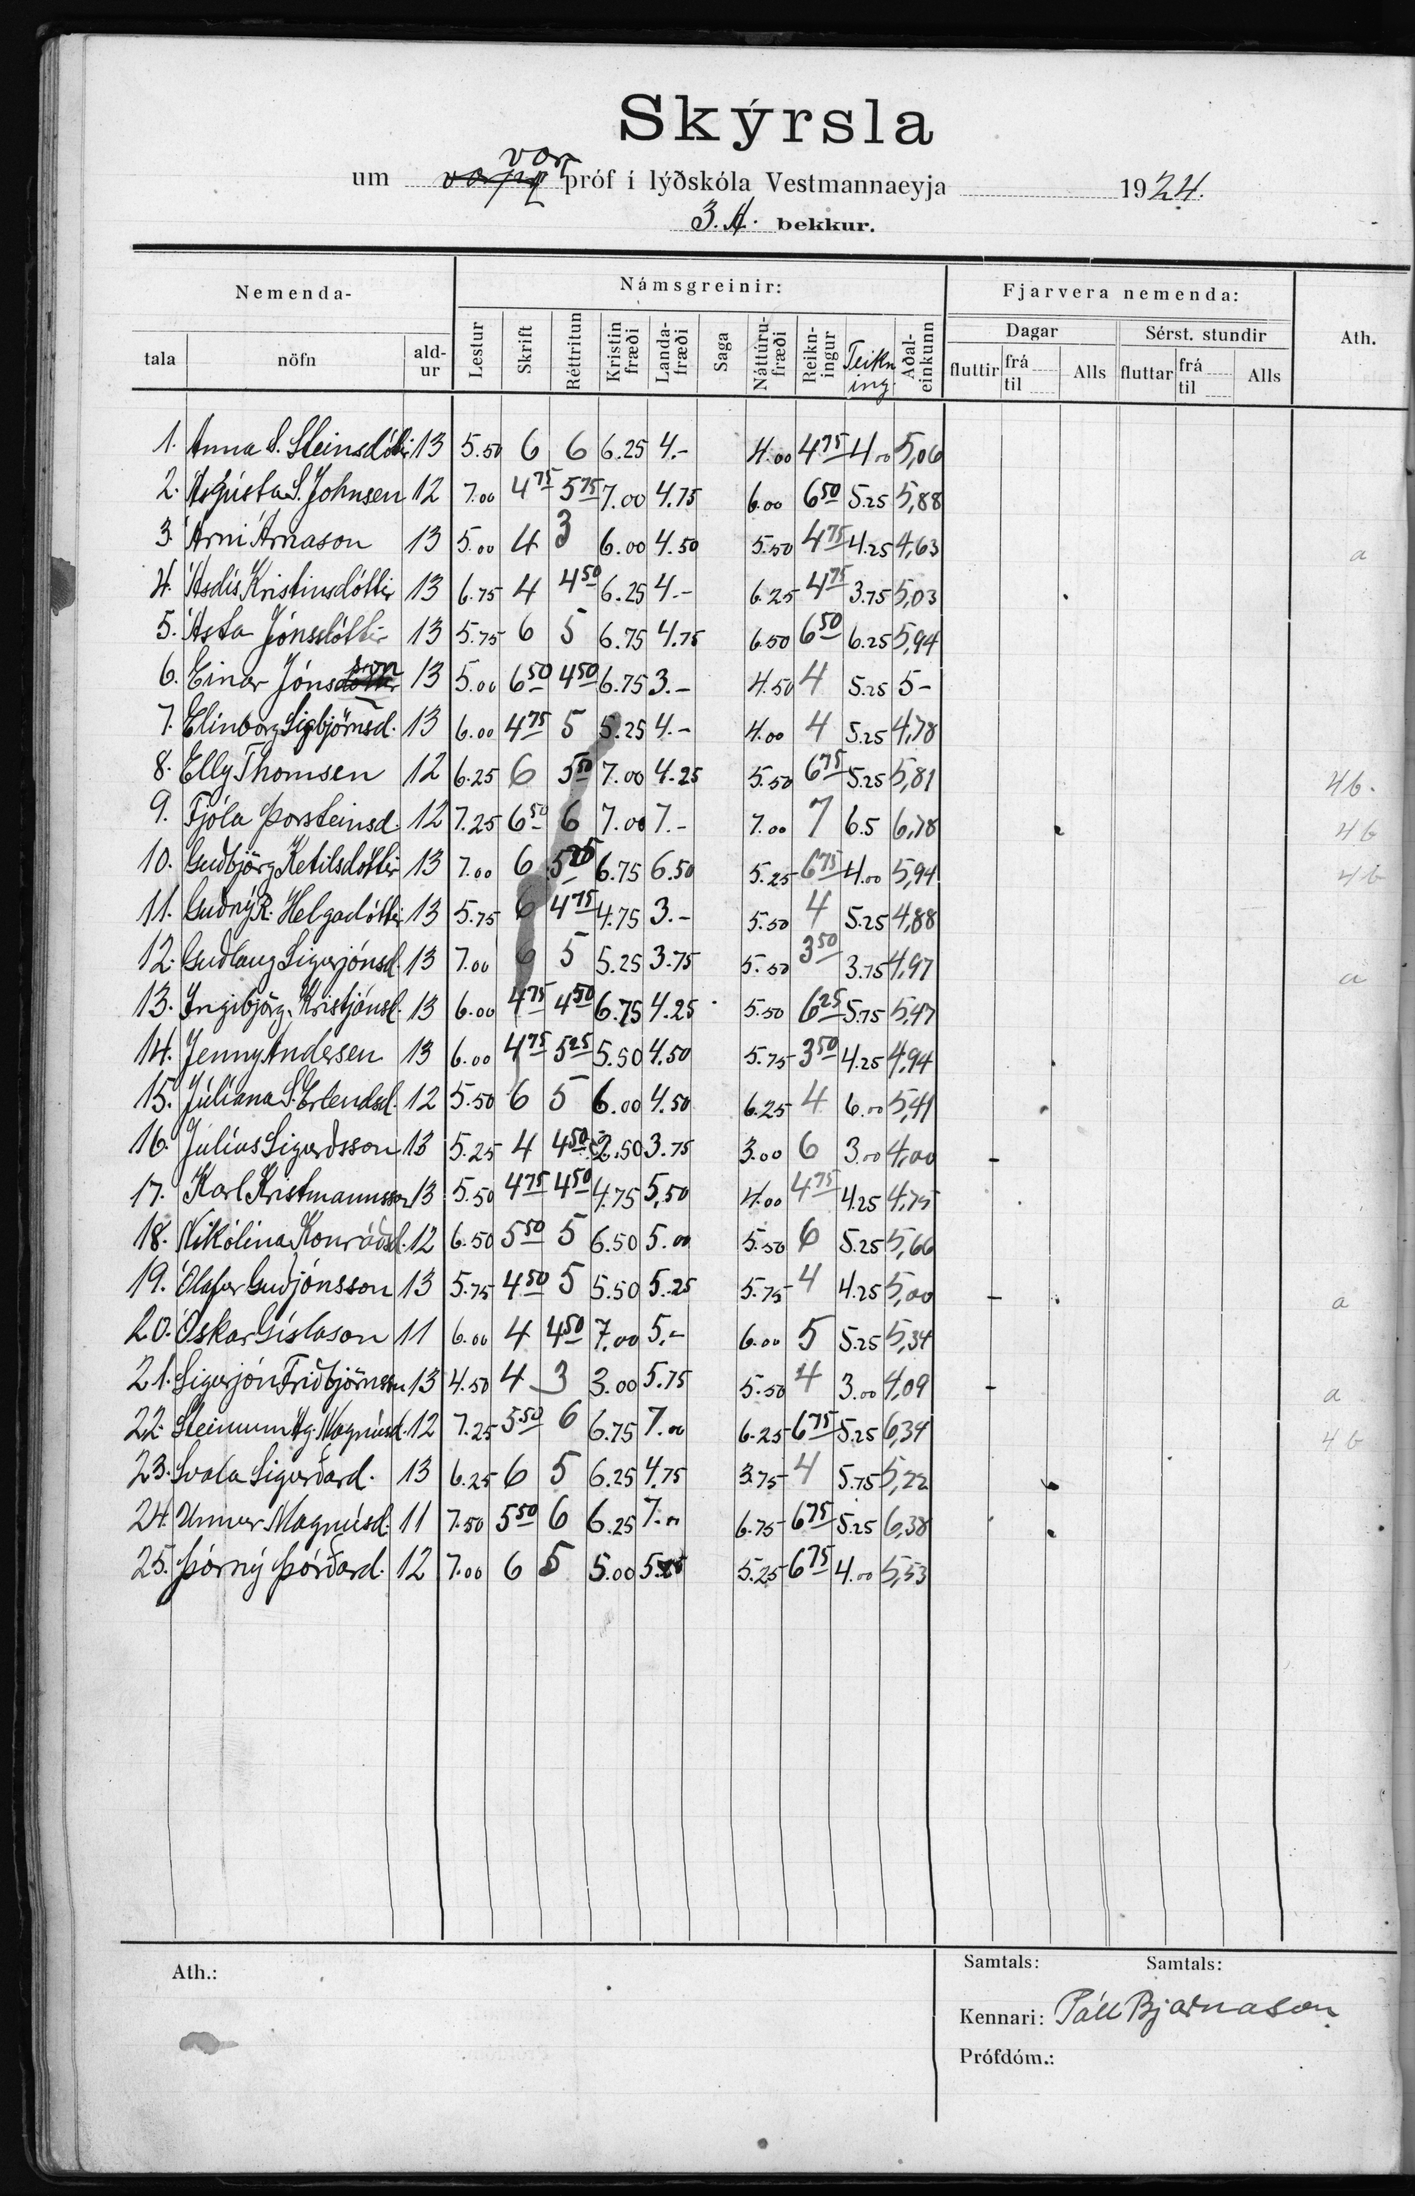 Skýrsla
um vor próf í lýðskóla Vestmannaeyja 1924.
3. A. bekkur.
Nemenda- Námsgreinir: Fjarvera nemenda: Ath.
tala nöfn aldur Lestur Skrift Réttritun Kristin fræði Landafræði Saga Náttúrufræði Reikningur Teikning. Aðaleinkunn Dagar Sérst. stundir
fluttir frá til Alls fluttar frá til Alls
1. Anna S. Steinsdóttir 13 5.50 6 6 6.25 4.- 4.00 4 75 4.00 5,06
2. Ágústa S. Johnsen 12 7.00 4 75 5 75 7.00 4.75 6.00 6 50 5.25 5,88
3. Árni Árnason 13 5.00 4 3 6.00 4.50 5.50 4 75 4.25 4,63 a
4. Ásdís Kristinsdóttir 13 6.75 4 4 50 6.25 4.- 6.25 4 75 3.75 5,03
5. Ásta Jónsdóttir 13 5.75 6 5 6.75 4.75 6.50 6 50 6.25 5,94
6. Einar Jónsson 13 5.00 6 50 4 50 6.75 3.- 4.50 4 5.25 5-
7. Elinborg Sigbjörnsd. 13 6.00 4 75 5 5.25 4.- 4.00 4 5.25 4,78
8. Elly Thomsen 12 6.25 6 5 50 7.00 4.25 5.50 6 75 5.25 5,81 4b.
9. Fjóla Þorsteinsd. 12 7.25 6 50 6 7.00 7.- 7.00 7 6.5 6,78 4b
10. Guðbjörg Ketilsdóttir 13 7.00 6 5 25 6.75 6.50 5.25 6 75 4.00 5,94 4b
11. Guðný R. Helgadóttir 13 5.75 6 4 75 4.75 3.- 5.50 4 5.25 4,88
12. Guðlaug Sigurjónsd. 13 7.00 6 5 5.25 3.75 5.50 3 50 3.75 4,97 a
13. Ingibjörg Kristjánsd. 13 6.00 4 75 4 50 6.75 4.25 5.50 6 25 5.75 5,47
14. Jenny Andersen 13 6.00 4 75 5 25 5.50 4.50 5.75 3 50 4.25 4,94
15. Júlíana S. Erlendsd. 12 5.50 6 5 6.00 4.50 6.25 4 6.00 5,41
16. Júlíus Sigurðsson 13 5.25 4 4 50 2.50 3.75 3.00 6 3.00 4,00 -
17. Karl Kristmannsson 13 5.50 4 75 4 50 4.75 5,50 4.00 4 75 4.25 4,75
18. Nikólína Konráðsd. 12 6.50 5 50 5 6.50 5.00 5.50 6 5.25 5,66
19. Ólafur Guðjónsson 13 5.75 4 50 5 5.50 5.25 5.75 4 4.25 5,00 - a
20. Óskar Gíslason 11 6.00 4 4 50 7.00 5.- 6.00 5 5.25 5,34
21. Sigurjón Friðbjörnsson 13 4.50 4 3 3.00 5.75 5.50 4 3.00 4,09 - a
22. Steinunn Ág. Magnúsd. 12 7.25 5 50 6 6.75 7.00 6.25 6 75 5.25 6,34 4b
23. Svala Sigurðard. 13 6.25 6 5 6.25 4.75 3.75 4 5.75 5,22
24. Unnur Magnúsd. 11 7.50 5 50 6 6.25 7.00 6.75 6 75 5.25 6,38
25. Þórný Þórðard. 12 7.00 6 5 5.00 5.25 5.25 6 75 4.00 5,53
Ath.: Samtals: Samtals:
Kennari: Páll Bjarnason
Prófdóm.: